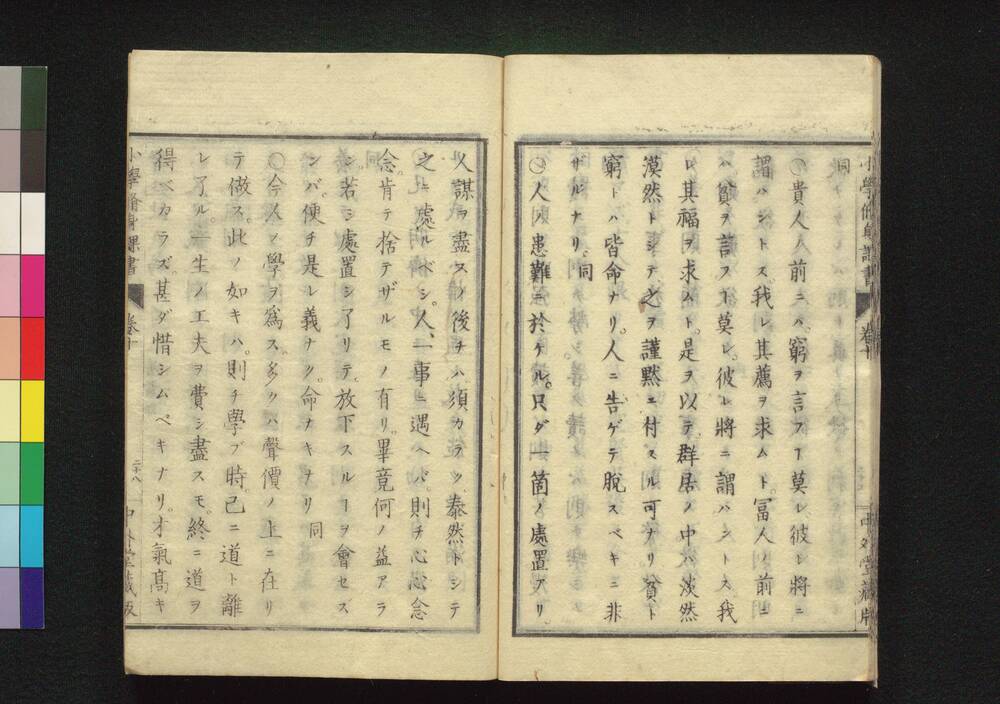 同
○貴人ノ前ニハ窮ヲ言フヿ莫レ彼レ將ニ
謂ハントス我レ其薦ヲ求ムト冨人ノ前ニ
ハ貧ヲ言フヿ莫レ彼レ將ニ謂ハントス我
レ其福ヲ求ムト是ヲ以テ群居ノ中ハ淡然
漠然トシテ之ヲ謹黙ニ付スル可ナリ貧ト
窮トハ皆命ナリ人ニ告ゲテ脱スベキニ非
ザルナリ同
○人患難ニ於ケル只ダ一箇ノ處置アリ
人謀ヲ盡スノ後チハ須カラク泰然トシテ
之ニ處ルベシ人一事ニ遇ヘバ則チ心心念
念肯テ捨テザルモノ有リ畢竟何ノ益アラ
ン若シ處置シ了リテ放下スルヿヲ會セズ
ンバ便チ是レ義ナク命ナキナリ 同
○今人ノ學ヲ爲ス多クハ聲價ノ上ニ在リ
テ做ス此ノ如キハ則チ學ブ時已ニ道ト離
レ了ル一生ノ工夫ヲ費シ盡スモ終ニ道ヲ
得ベカラズ甚ダ惜シムベキナリ才氣髙キ
小學脩身課書 卷十 二十八 中外堂藏版